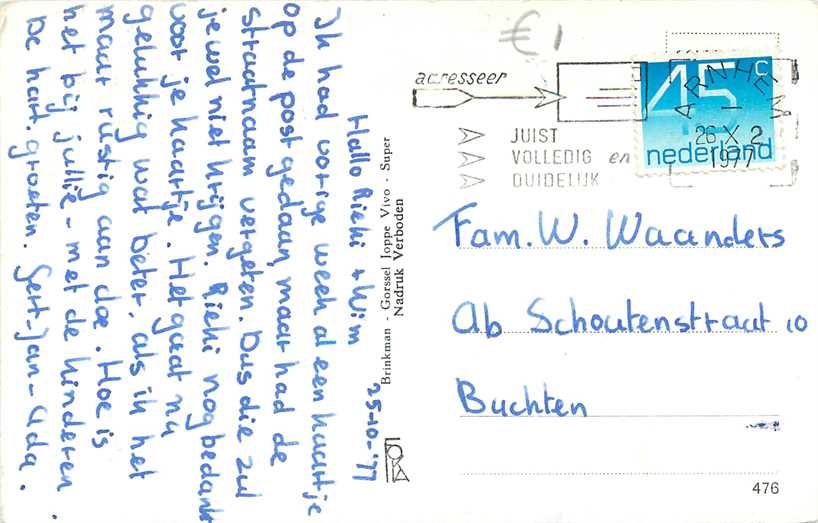 Hallo Riehi + Wim 25-10-'77
Ik had vorige week al een kaartje
op de post gedaan, maar had de
straatnaam vergeten. Dus die zul
je wel niet krijgen. Riehi nog bedankt
voor je kaartje. Het gaat nu
gelukkig wat beter, als ik het
maar rustig aan doe. Hoe is
het bij jullie - met de kinderen.
De hart. groeten. Gert-Jan - Ada.
Brinkman - Gorssel Joppe Vivo - Super
Nadruk Verboden
€ 1
adresseer
JUIST
VOLLEDIG en
DUIDELIJK
ARNHEM
26 X 2
1977
45 c
nederland
Fam. W. Waanders
Ab Schoutenstraat 10
Buchten
476